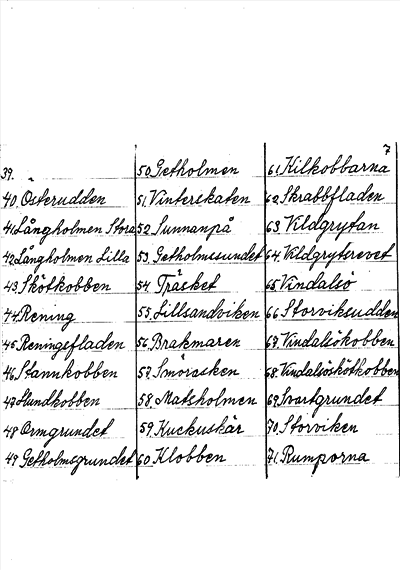 7
39.
40. Österudden
41. Långholmen Stora
42. Långholmen Lilla
43. Skötkobben
44. Rening
45. Reningsfladen
46. Stannkobben
47. Hundkobben
48. Ormgrundet
49. Getholmsgrundet
50. Getholmen
51. Vinterskaten
52. Sunnanpå
53. Getholmssundet
54. Träsket
55. Lillsandviken
56. Brakmaren
57. Smörasken
58. Matsholmen
59. Kuckuskär
60. Klobben
61. Kilkobbarna
62. Skrabbfladen
63. Vildgrytan
64. Vildgytsrevet
65. Vindalsö
66. Storviksudden
67. Vindalsökobben
68. Vindalsöskötkobben
69. Svartgrundet
70. Storviken
71. Rumporna